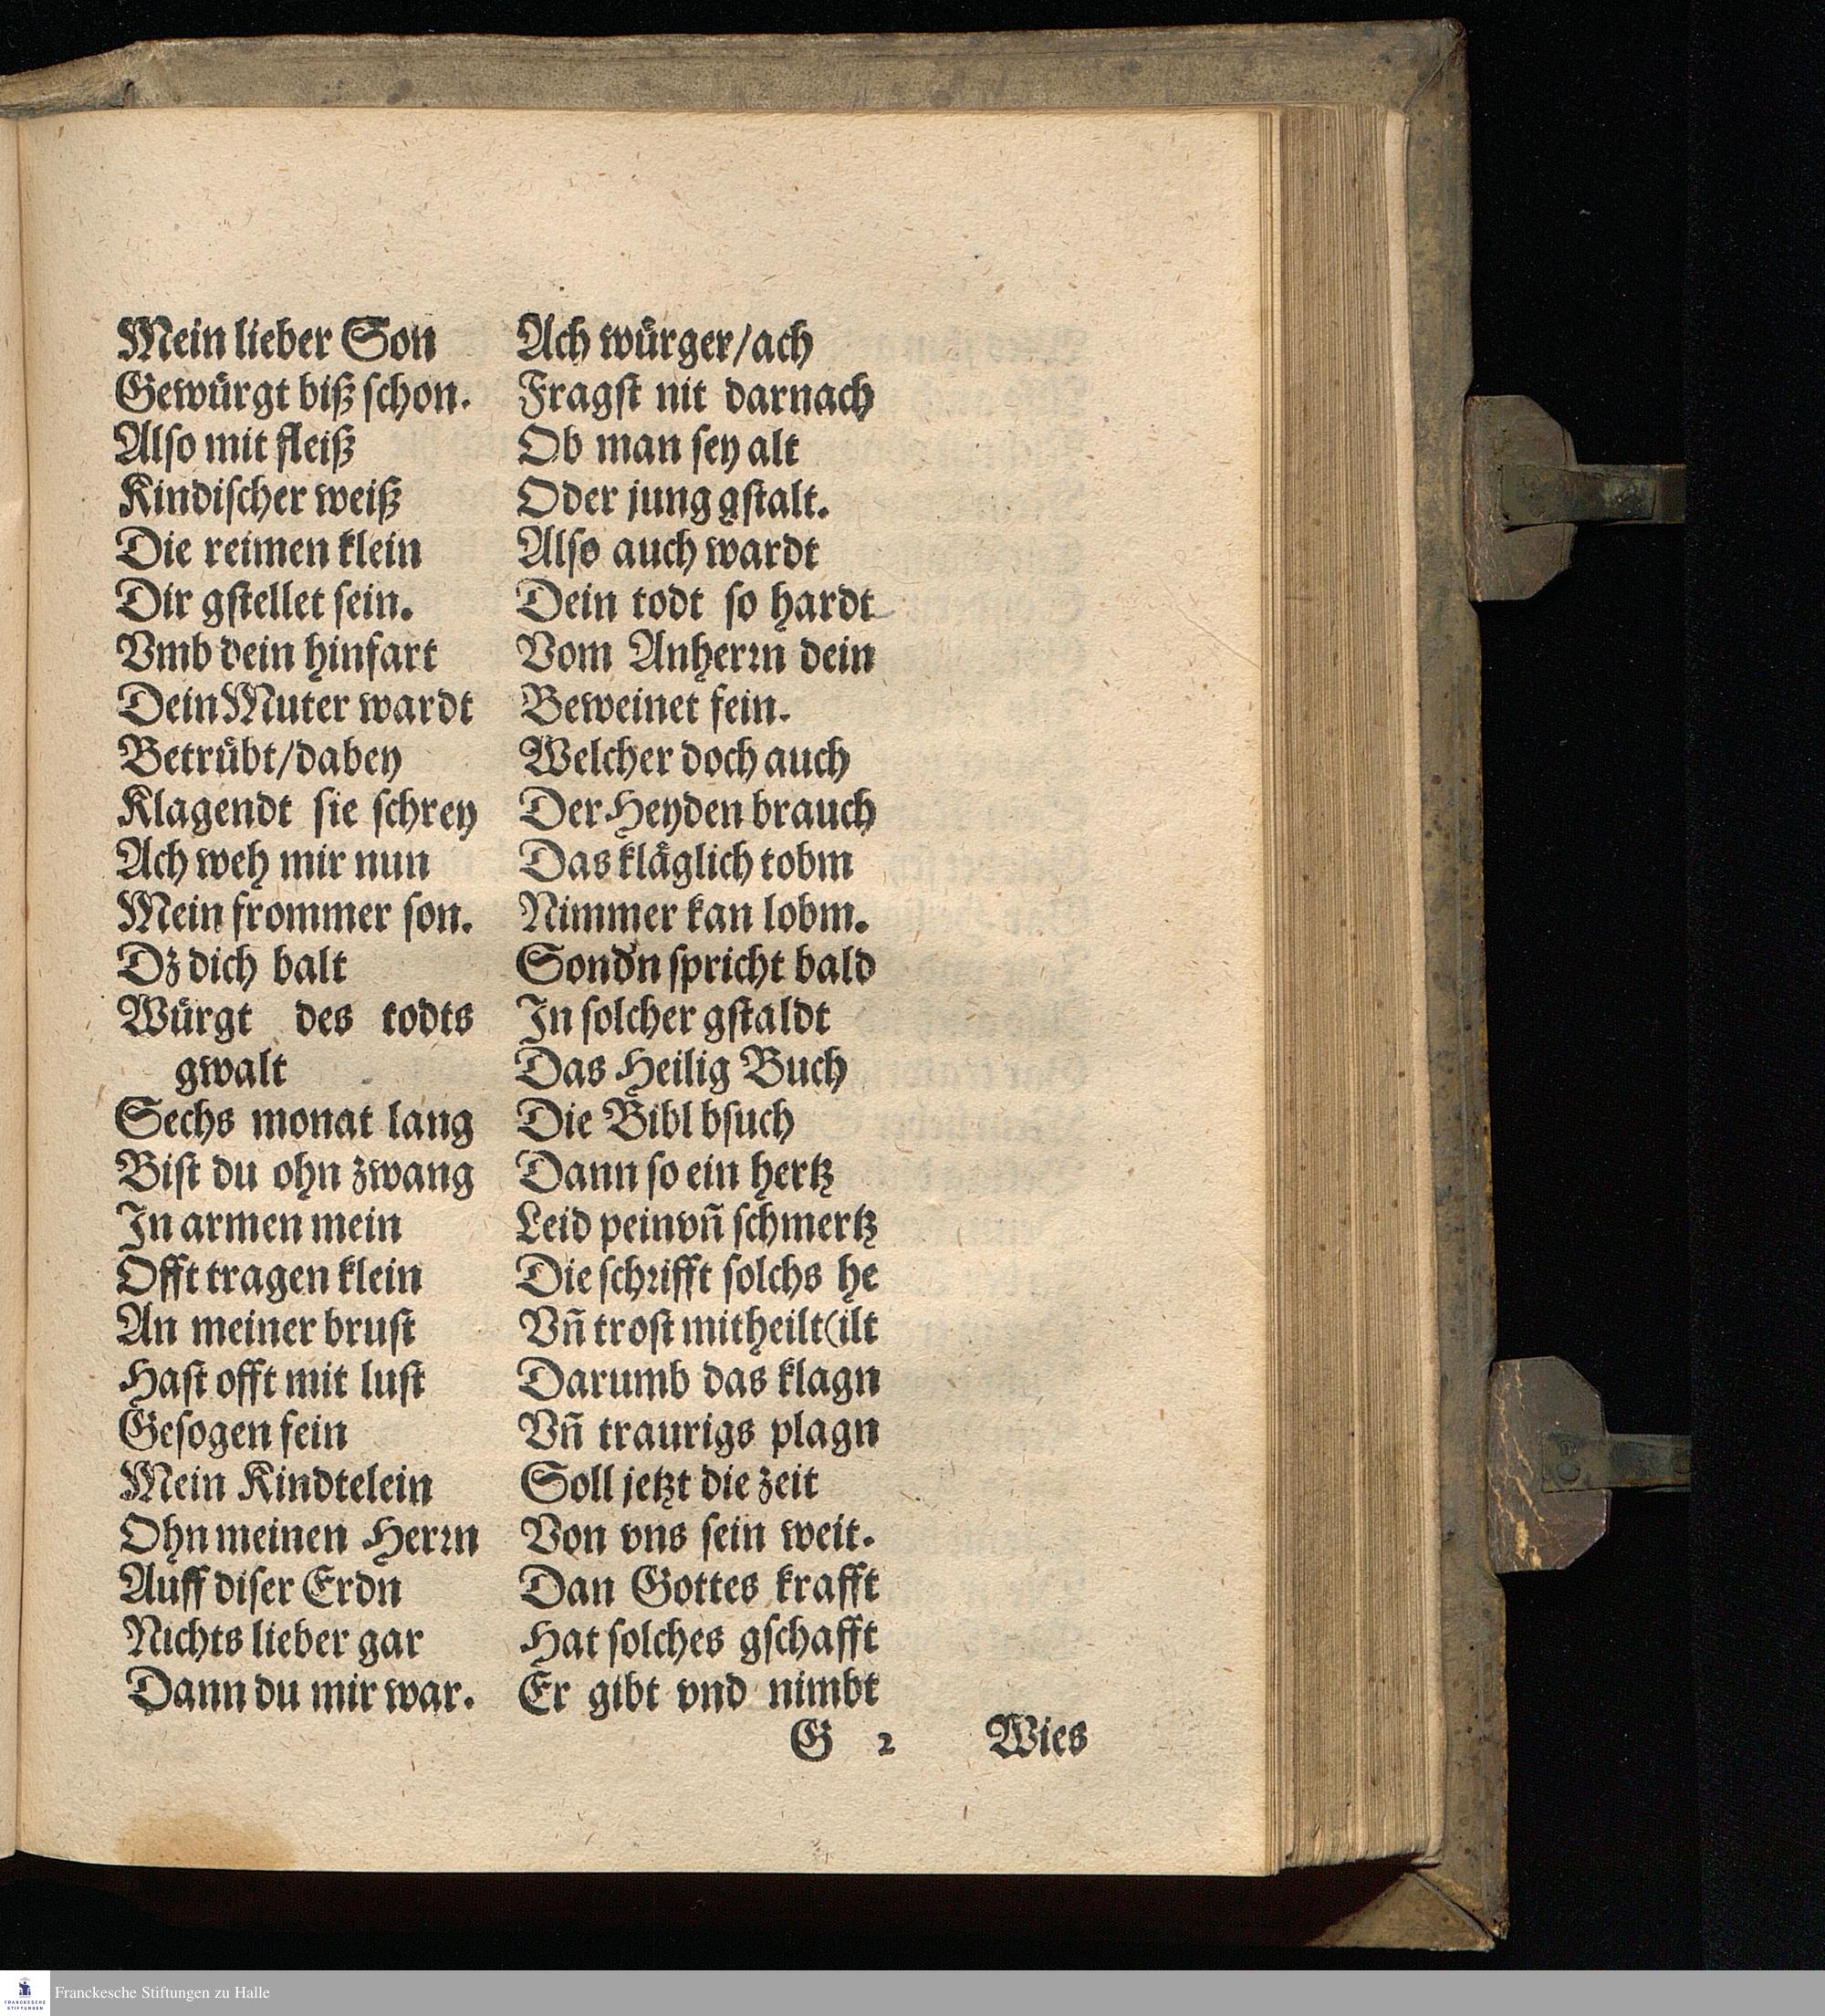 Mein lieber Son
Gewürgt biß ſchon.
Alſo mit fleiß
Kindiſcher weiß
Die reimen klein
Dir gſtellet ſein.
Vmb dein hinfart
Dein Muter wardt
Betrübt/dabey
Klagendt ſie ſchrey
Ach weh mir nun
Mein frommer ſon.
Dz dich balt
Würgt des todts
gwalt
Sechs monat lang
Biſt du ohn zwang
In armen mein
Offt tragen klein
An meiner bruſt
Haſt offt mit luſt
Geſogen fein
Mein Kindtelein
Ohn meinen Herꝛn
Auff diſer Erdn
Nichts lieber gar
Dann du mir war.
Ach würger/ach
Fragſt nit darnach
Ob man ſey alt
Oder jung gſtalt.
Alſo auch wardt
Dein todt ſo hardt
Vom Anherꝛn dein
Beweinet fein.
Welcher doch auch
Der Heyden brauch
Das kläglich tobm
Nimmer kan lobm.
Sondn ſpricht bald
In ſolcher gſtaldt
Das Heilig Buch
Die Bibl bſuch
Dann ſo ein hertz
Leid pein vñ ſchmertz
Die ſchꝛifft ſolchs he
Vñ troſt mitheilt(ilt
Darumb das klagn
Vñ traurigs plagn
Soll jetzt die zeit
Von vns ſein weit.
Dan Gottes krafft
Hat ſolches gſchafft
Er gibt vnd nimbt
G 2 Wies
FRANCKESCHE
STIFTUNGEN
Franckesche Stiftungen zu Halle